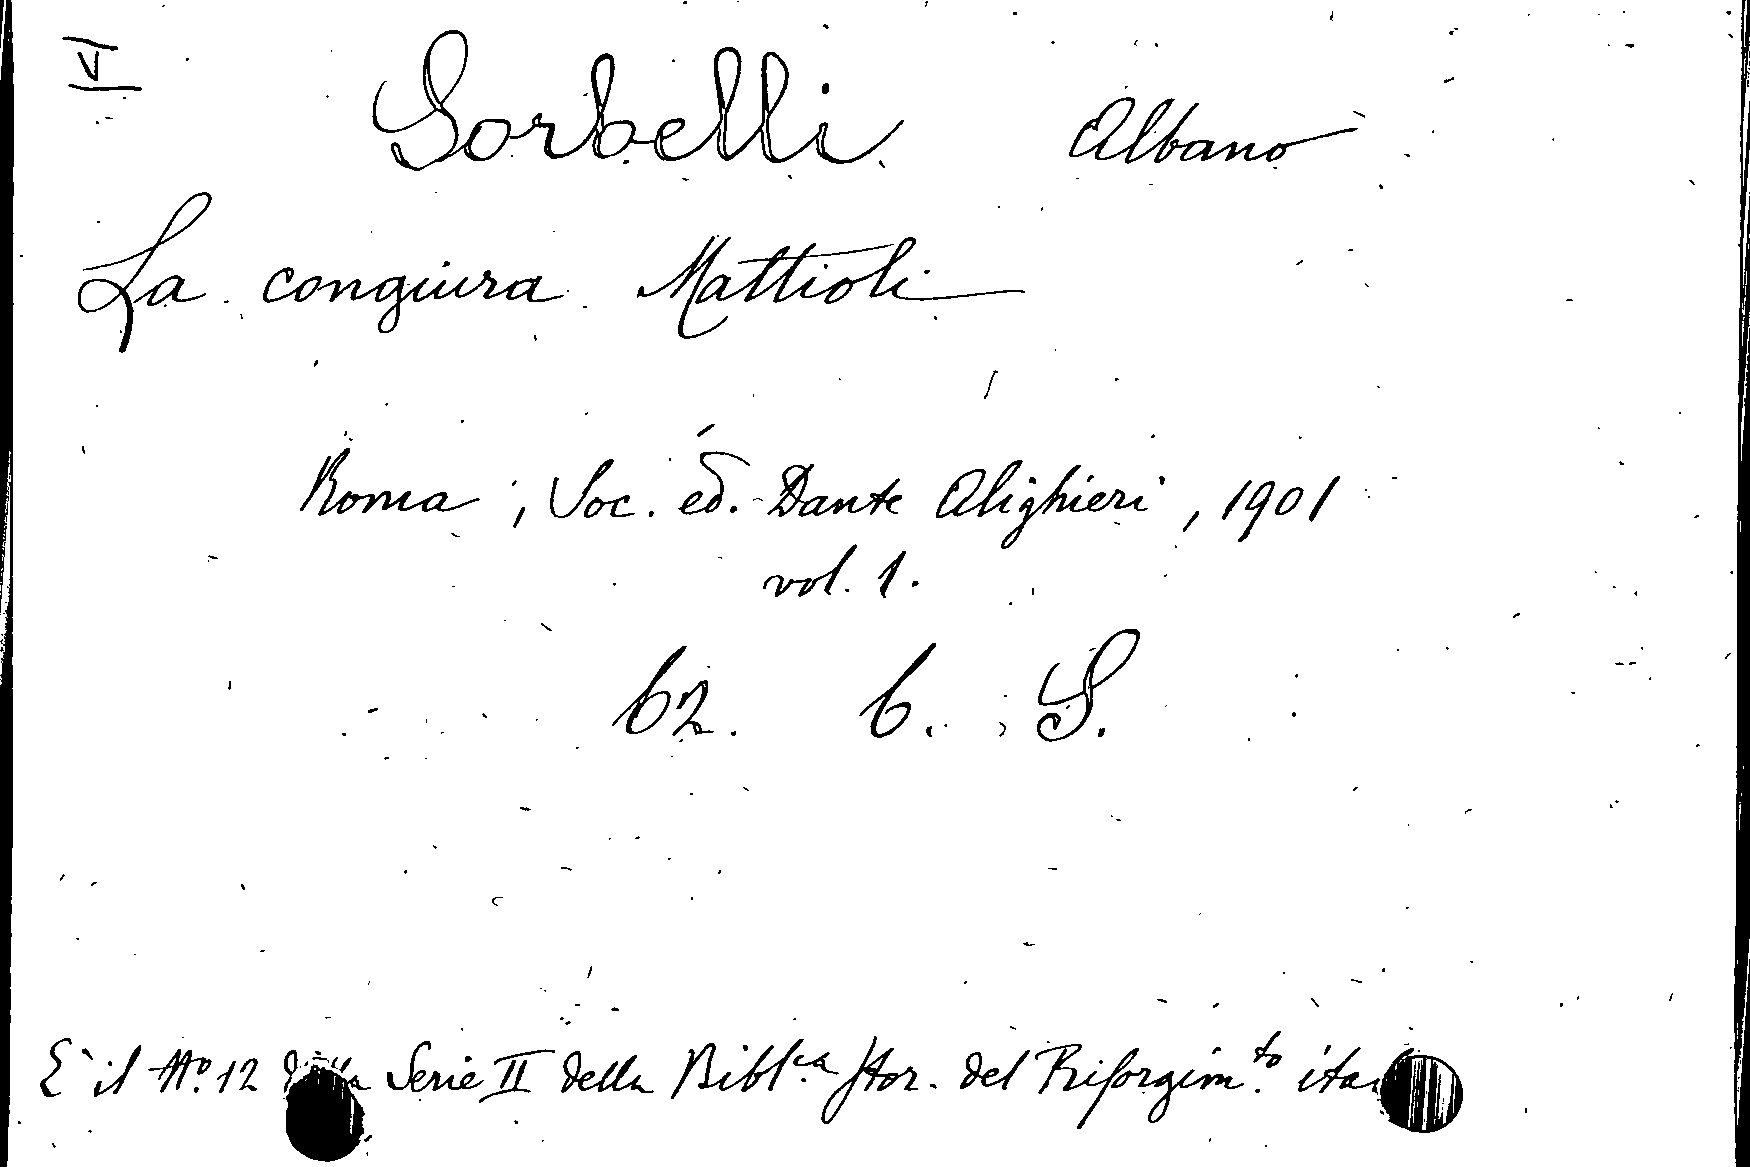 Sorbelli Albano
La congiura Mattioli
Roma, Soc. ed. Dante Alighieri, 1901
vol. 1.
62. 6. S.
E' il No. 12 della Serie II della Bibl.ca stor. del Risorgim.to ital